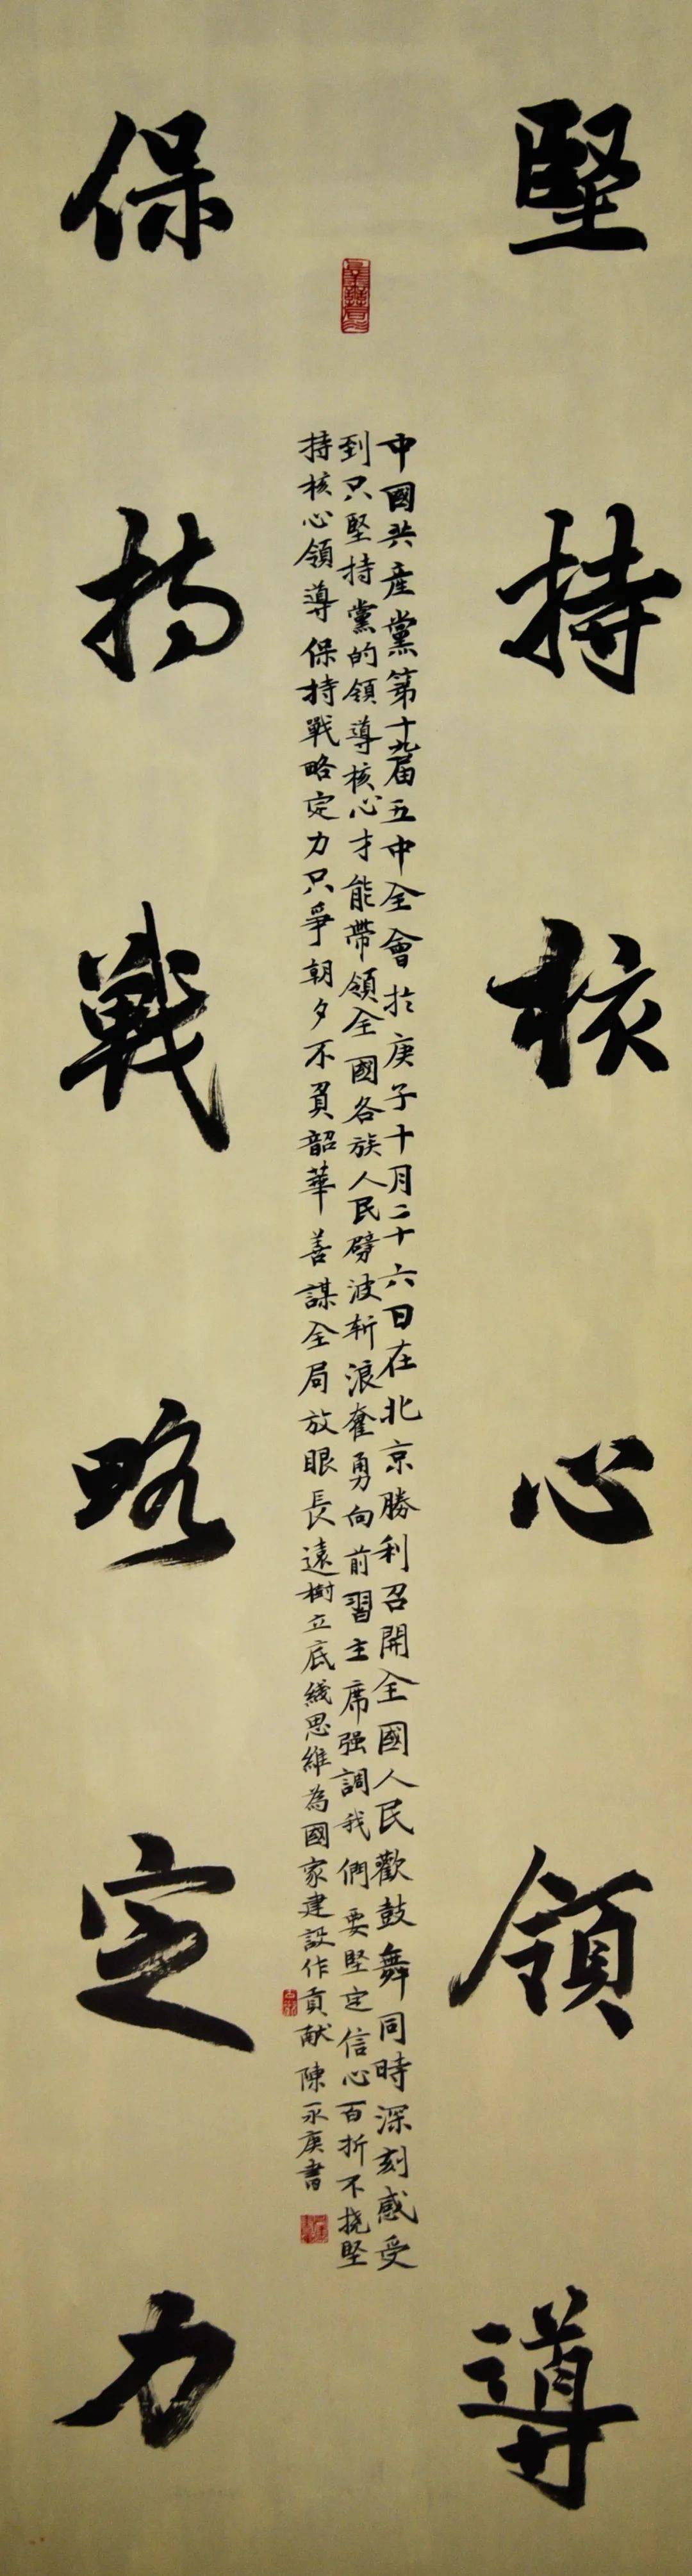 堅持核心領導
中國共產黨第十九屆五中全會於庚子十月二十六日在北京勝利召開全國人民歡鼓舞同時深刻感受
到只堅持黨的領導核心才能帶領全國各族人民劈波斬浪奮勇向前習主席强調我們要堅定信心百折不撓堅
持核心領導保持戰略定力只爭朝夕不負韶華善謀全局放眼長遠樹立底綫思維為國家建設作貢献陳永庚書
保持戰略定力